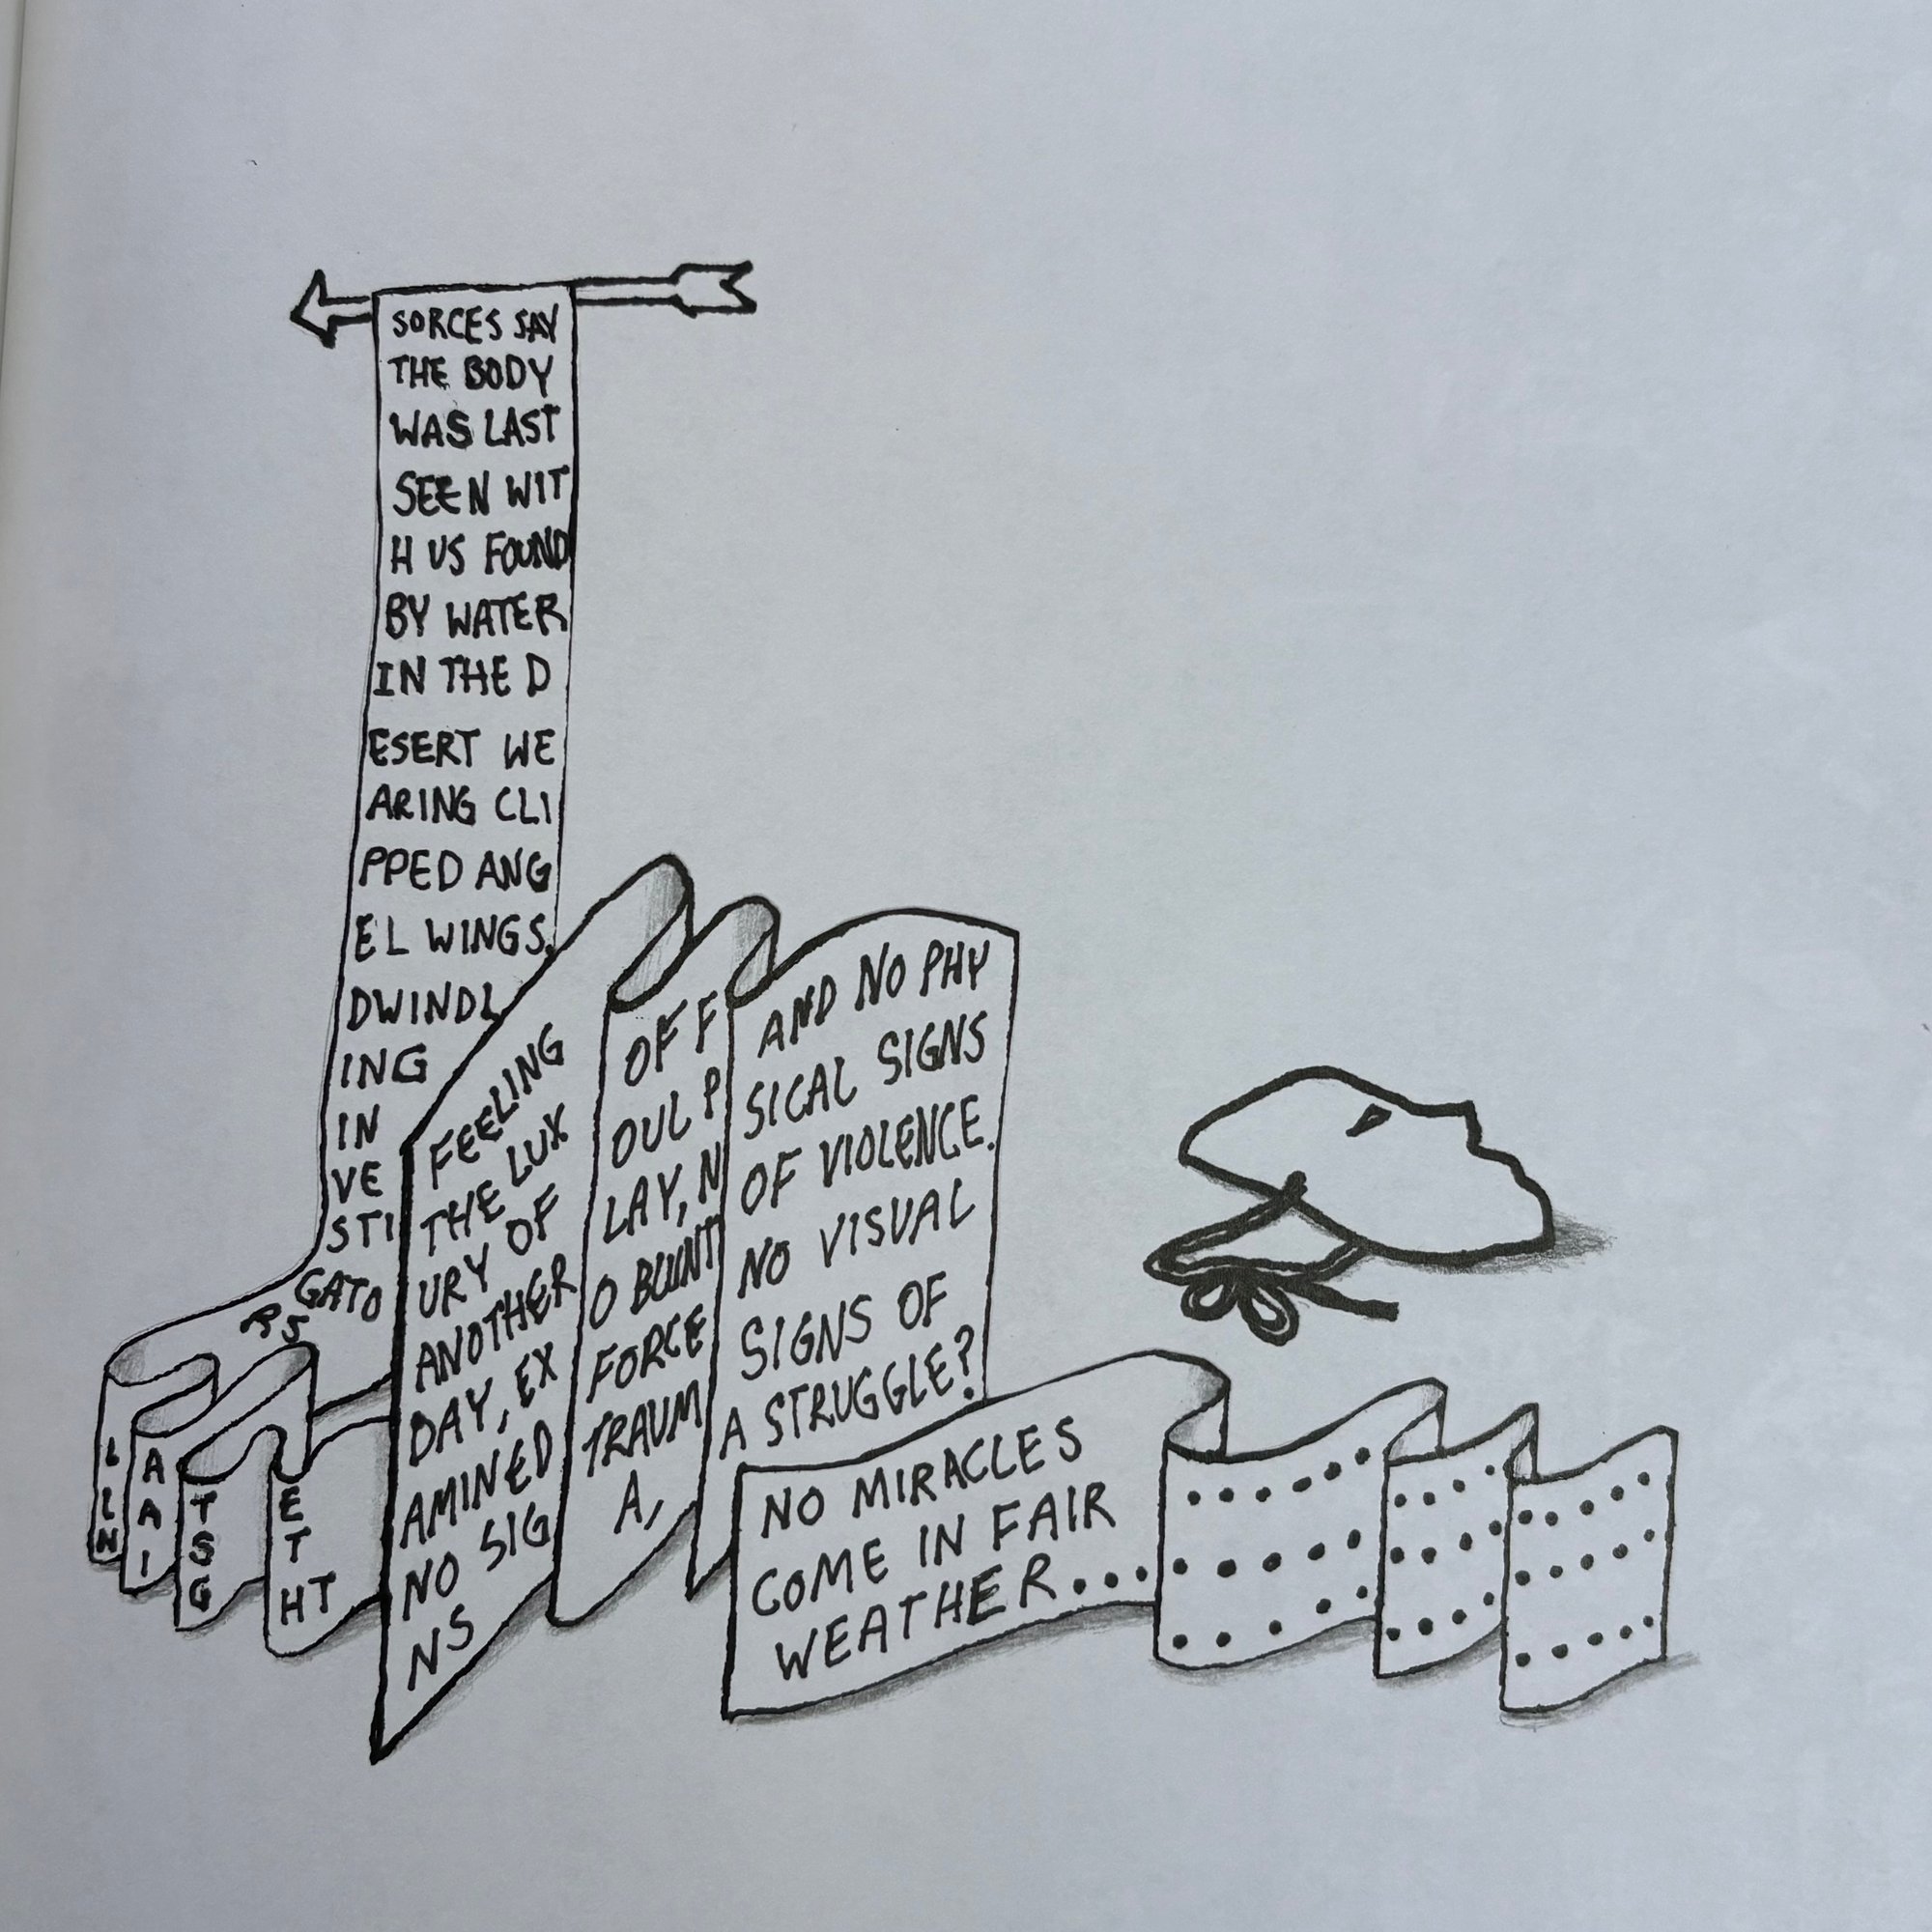 SORCES SAY
THE BODY
WAS LAST
SEEN WIT
H US FOUND
BY WATER
IN THE D
ESERT WE
ARING CLI
PPED ANG
EL WINGS.
DWINDL
ING
IN
VE
STI
GATO
RS
L A T E
L A S T
N I G HT
FEELING
THE LUX
URY OF
ANOTHER
DAY, EX
AMINED
NO SIG
NS
OF F
OUL P
LAY, N
O BLUNT
FORCE
TRAUM
A,
AND NO PHY
SICAL SIGNS
OF VIOLENCE.
NO VISUAL
SIGNS OF
A STRUGGLE?
NO MIRACLES
COME IN FAIR
WEATHER....